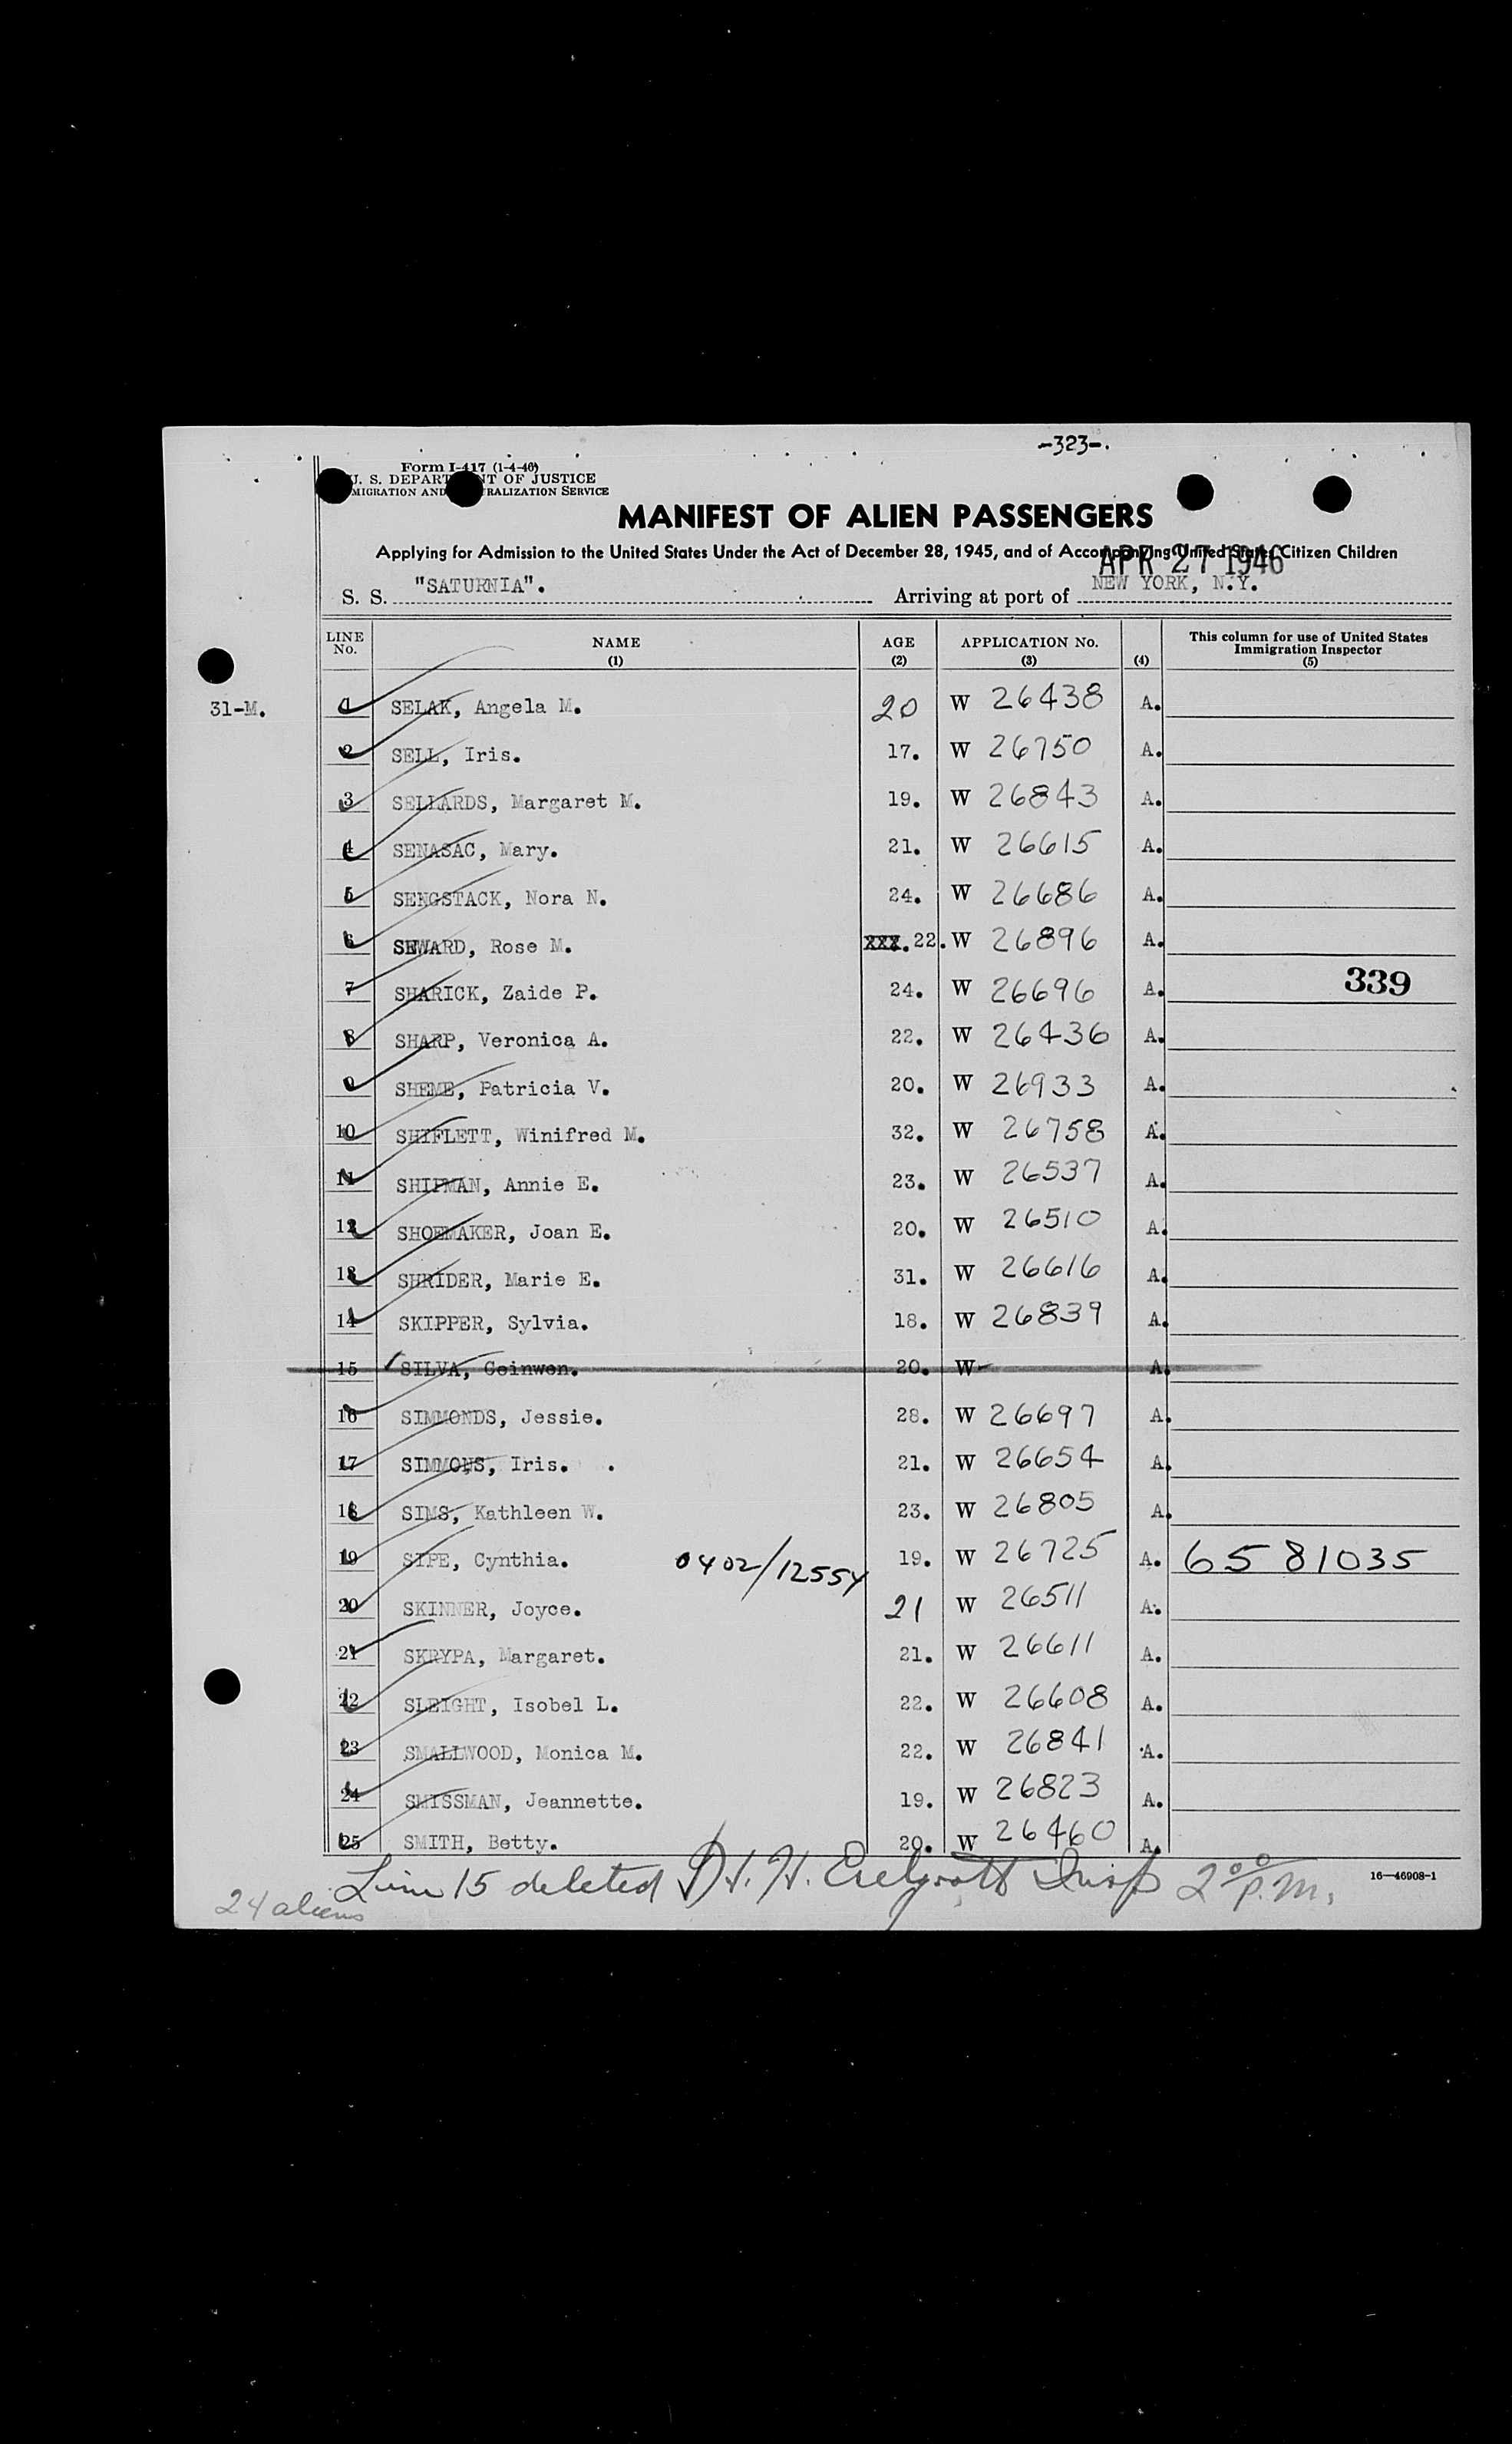 -323-.
Form I-417 (1-4-46)
U. S. DEPARTMENT OF JUSTICE
IMMIGRATION AND NATURALIZATION SERVICE
MANIFEST OF ALIEN PASSENGERS
Applying for Admission to the United States Under the Act of December 28, 1945, and of Accompanying United States Citizen Children
APR 27 1946
S. S. "SATURNIA". Arriving at port of NEW YORK, N.Y.
LINE No. NAME (1) AGE (2) APPLICATION No. (3) (4) This column for use of United States Immigration Inspector (5)
31-M. 1 SELAK, Angela M. 20 W 26438 A.
2 SELL, Iris. 17. W 26750 A.
3 SELLARDS, Margaret M. 19. W 26843 A.
4 SENASAC, Mary. 21. W 26615 A.
5 SENGSTACK, Nora N. 24. W 26686 A.
6 SEWARD, Rose M. XXX. 22. W 26896 A.
7 SHARICK, Zaide P. 24. W 26696 A. 339
8 SHARP, Veronica A. 22. W 26436 A.
9 SHEME, Patricia V. 20. W 26933 A.
10 SHIFLETT, Winifred M. 32. W 26758 A.
11 SHIPMAN, Annie E. 23. W 26537 A.
12 SHOEMAKER, Joan E. 20. W 26510 A.
13 SHRIDER, Marie E. 31. W 26616 A.
14 SKIPPER, Sylvia. 18. W 26839 A.
15 SILVA, Ceinwen. 20. W- A.
16 SIMMONDS, Jessie. 28. W 26697 A.
17 SIMMONS, Iris. . 21. W 26654 A.
18 SIMS, Kathleen W. 23. W 26805 A.
19 SIPE, Cynthia. 0402/12554 19. W 26725 A. 6581035
20 SKINNER, Joyce. 21 W 26511 A.
21 SKRYPA, Margaret. 21. W 26611 A.
22 SLEIGHT, Isobel L. 22. W 26608 A.
23 SMALLWOOD, Monica M. 22. W 26841 A.
24 SMISSMAN, Jeannette. 19. W 26823 A.
25 SMITH, Betty. 20. W 26460 A.
Line 15 deleted H. Insp 2°° P.M.
24 aliens
16-46908-1